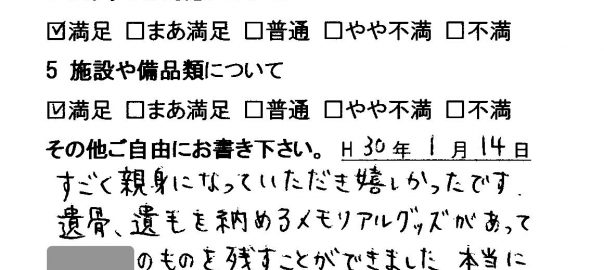 ☑満足 □まあ満足 □普通 □やや不満 □不満
5 施設や備品類について
☑満足 □まあ満足 □普通 □やや不満 □不満
その他ご自由にお書き下さい。 H 30 年 1 月 14 日
すごく親身になっていただき嬉しかったです.
遺骨、遺毛を納めるメモリアルグッズがあって
のものを残すことができました 本当に